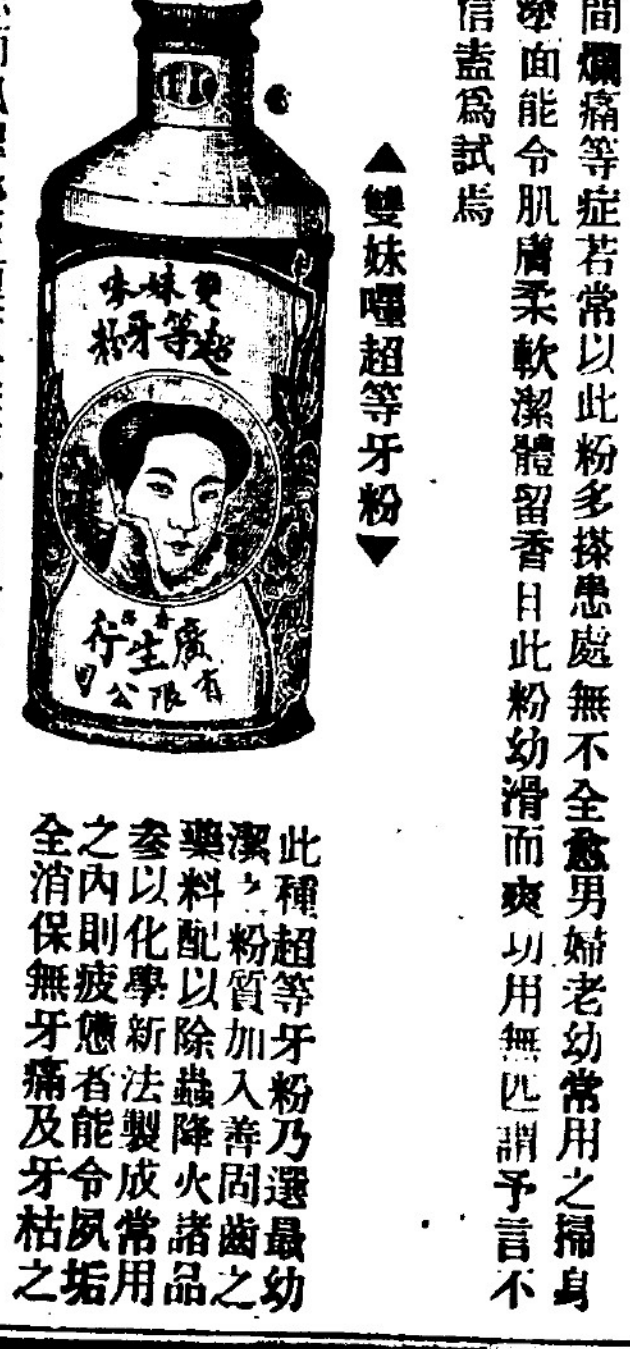 間爛痛等症若常以此粉多搽患處無不全愈男婦老幼常用之掃身
塗面能令肌膚柔軟潔體留香且此粉幼滑而爽功用無匹謂予言不
信盍爲試焉
▲雙妹嚜超等牙粉▼
雙妹嚜
超等牙粉
香港
廣生行
有限公司
此種超等牙粉乃選最幼
潔之粉質加入善固齒之
藥料配以除蟲降火諸品
叅以化學新法製成常用
之內則疲憊者能令夙垢
全消保無牙痛及牙枯之